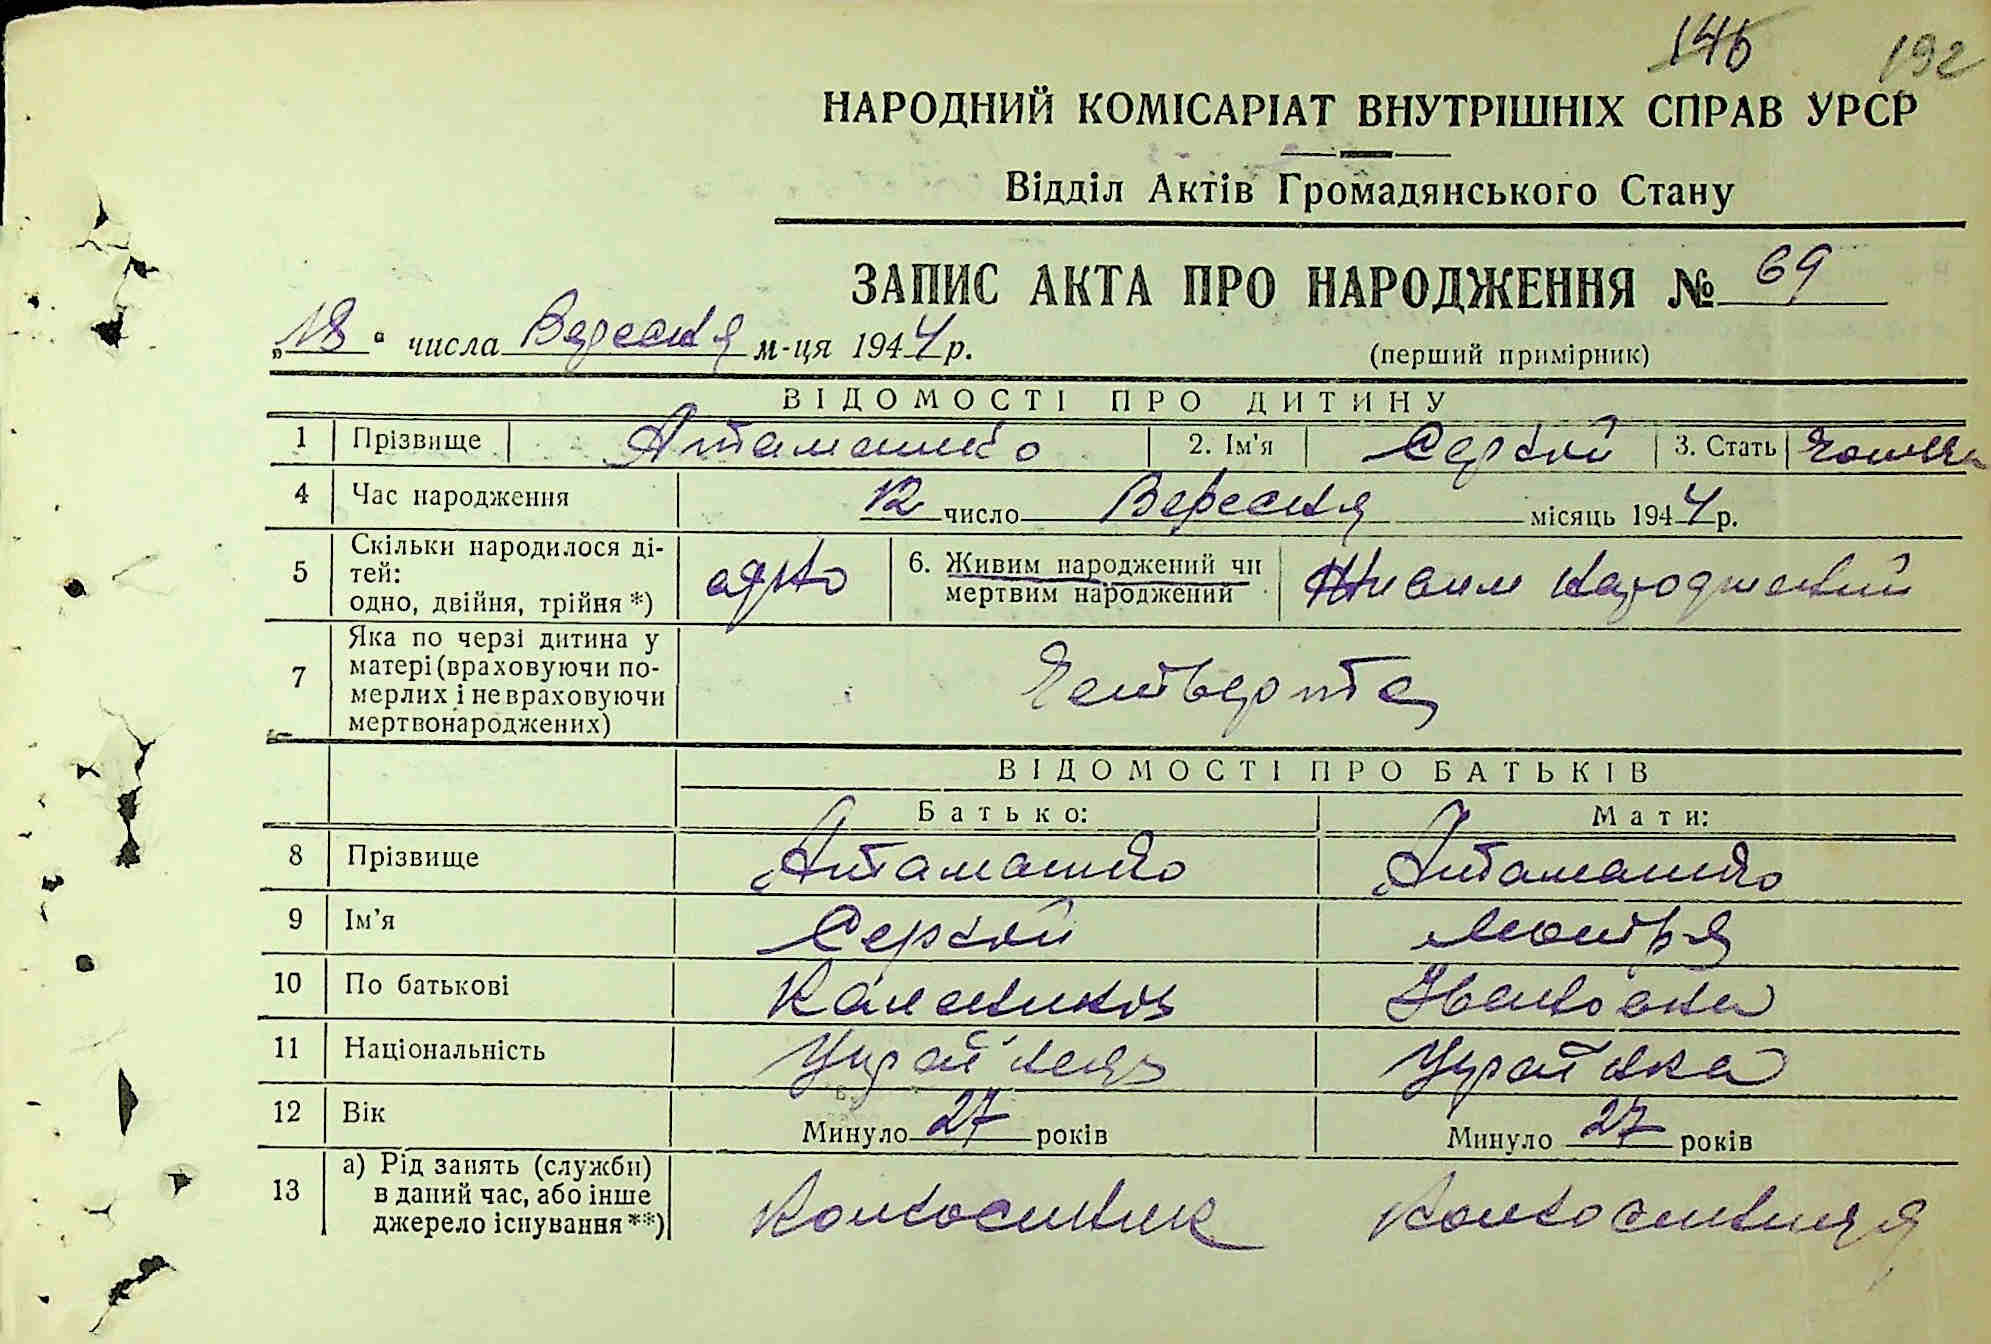 146 192
НАРОДНИЙ КОМІСАРІАТ ВНУТРІШНІХ СПРАВ УРСР
Відділ Актів Громадянського Стану
ЗАПИС АКТА ПРО НАРОДЖЕННЯ № 69
„18" числа Вересня м-ця 1944 р. (перший примірник)
ВІДОМОСТІ ПРО ДИТИНУ
1 Прізвище Атаманко 2. Ім'я Сергій 3. Стать
4 Час народження 12 число Вересня місяць 1944 р.
5 Скільки народилося ді-
тей:
одно, двійня, трійня *) одно 6. Живим народжений чи
мертвим народжений Живим народжений
7 Яка по черзі дитина у
матері (враховуючи по-
мерлих і не враховуючи
мертвонароджених) Четверта
ВІДОМОСТІ ПРО БАТЬКІВ
Батько: Мати:
8 Прізвище Атаманко Атаманко
9 Ім'я Сергій Мотря
10 По батькові Калеників Іванівна
11 Національність Україنець Українка
12 Вік Минуло 27 років Минуло 27 років
13 а) Рід занять (служби)
в даний час, або інше
джерело існування **) Колгоспник Колгоспниця